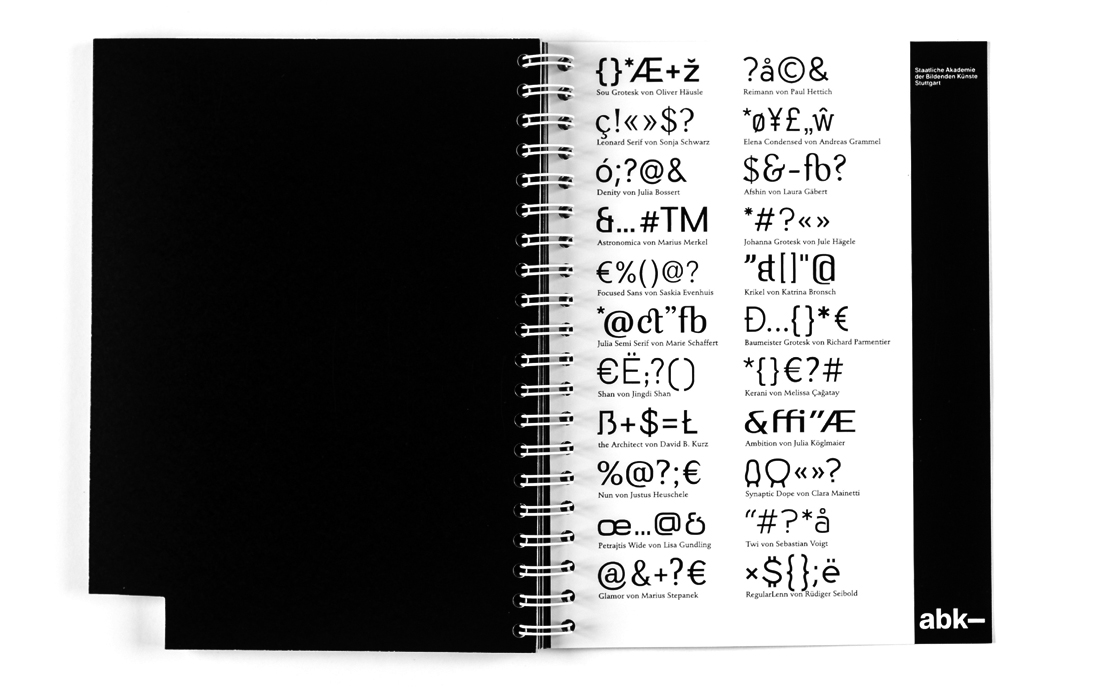 {}*Æ+ž
Sou Grotesk von Oliver Häusle
ç!«»$?
Leonard Serif von Sonja Schwarz
ó;?@&
Denity von Julia Bossert
&...#TM
Astronomica von Marius Merkel
€%()@?
Focused Sans von Saskia Evenhuis
*@ct”fb
Julia Semi Serif von Marie Schaffert
€Ë;?()
Shan von Jingdi Shan
ß+$=Ł
the Architect von David B. Kurz
%@?;€
Nun von Justus Heuschele
œ...@&
Petrajtis Wide von Lisa Gundling
@&+?€
Glamor von Marius Stepanek
?å©&
Reimann von Paul Hettich
*ø¥£„ŵ
Elena Condensed von Andreas Grammel
$&-fb?
Afshin von Laura Gäbert
*#?«»
Johanna Grotesk von Jule Hägele
”&[]"@
Krikel von Katrina Bronsch
Đ...{}*€
Baumeister Grotesk von Richard Parmentier
*{}€?#
Kerani von Melissa Çağatay
&ffi”Æ
Ambition von Julia Köglmaier
«»?
Synaptic Dope von Clara Mainetti
“#?*å
Twi von Sebastian Voigt
×${};ë
RegularLenn von Rüdiger Seibold
Staatliche Akademie
der Bildenden Künste
Stuttgart
abk–